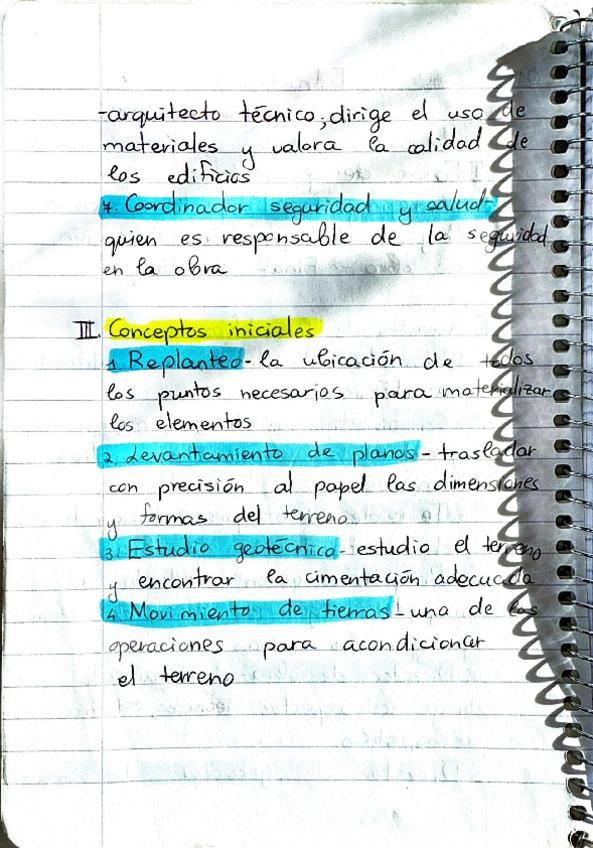 -arquitecto técnico; dirige el uso de
materiales y valora la calidad de
los edificios
7. Coordinador seguridad y salud-
quien es responsable de la seguridad
en la obra
III. Conceptos iniciales
1. Replanteo - la ubicación de todos
los puntos necesarios para materializar
los elementos
2. Levantamiento de planos - trasladar
con precisión al papel las dimensiones
y formas del terreno
3. Estudio geotécnico - estudio el terreno
y encontrar la cimentación adecuada
4. Movimiento de tierras - una de las
operaciones para acondicionar
el terreno